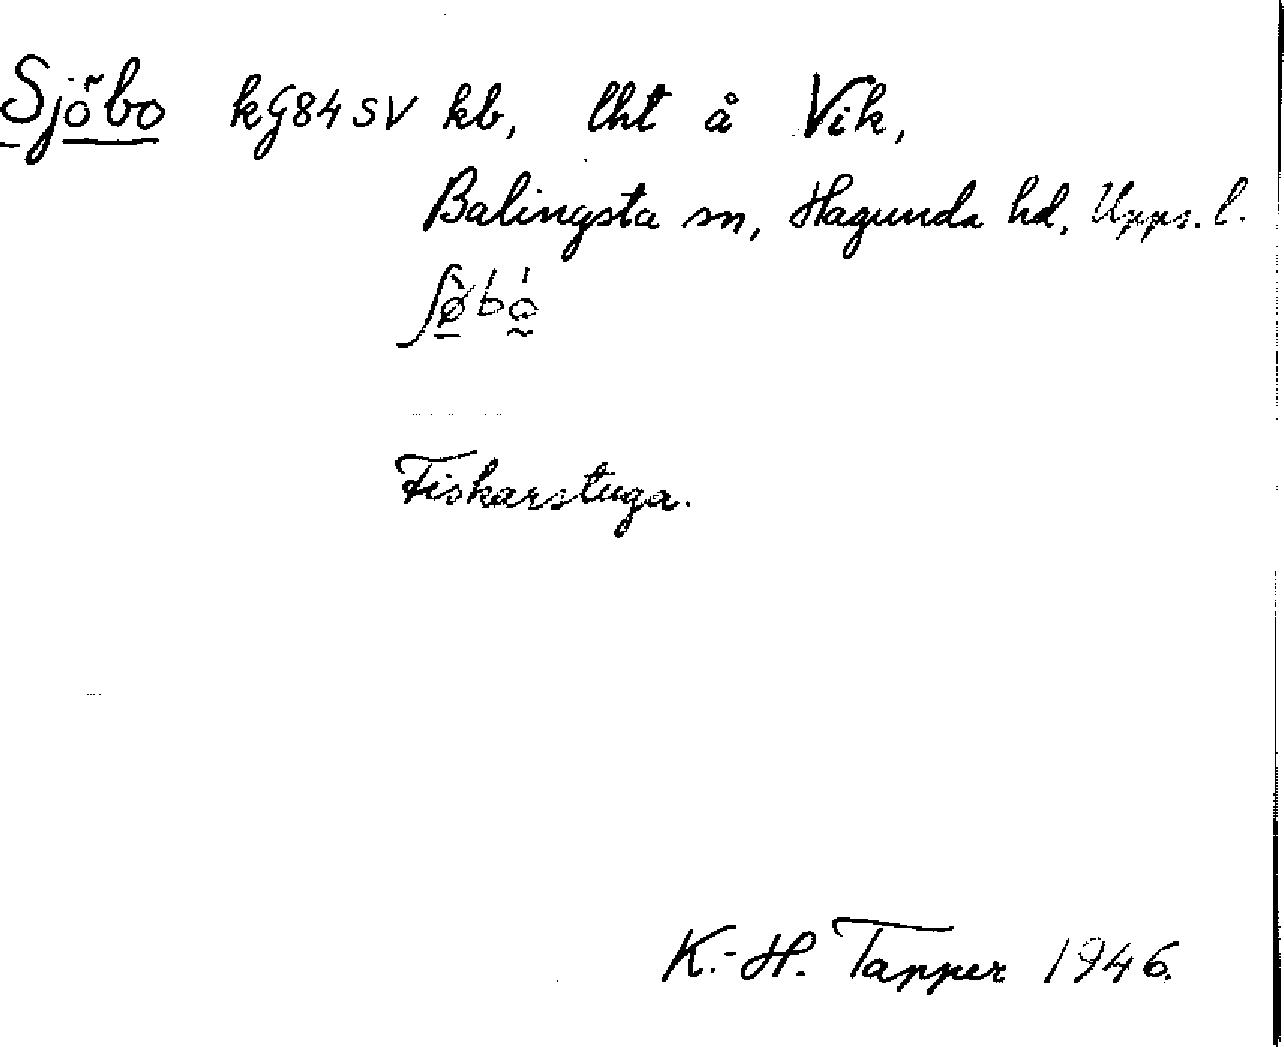 Sjöbo kG84SV kb, lht å Vik,
Balingsta sn, Hagunda hd, Upps. l.
Fiskarstuga.
K.-H. Tapper 1946.